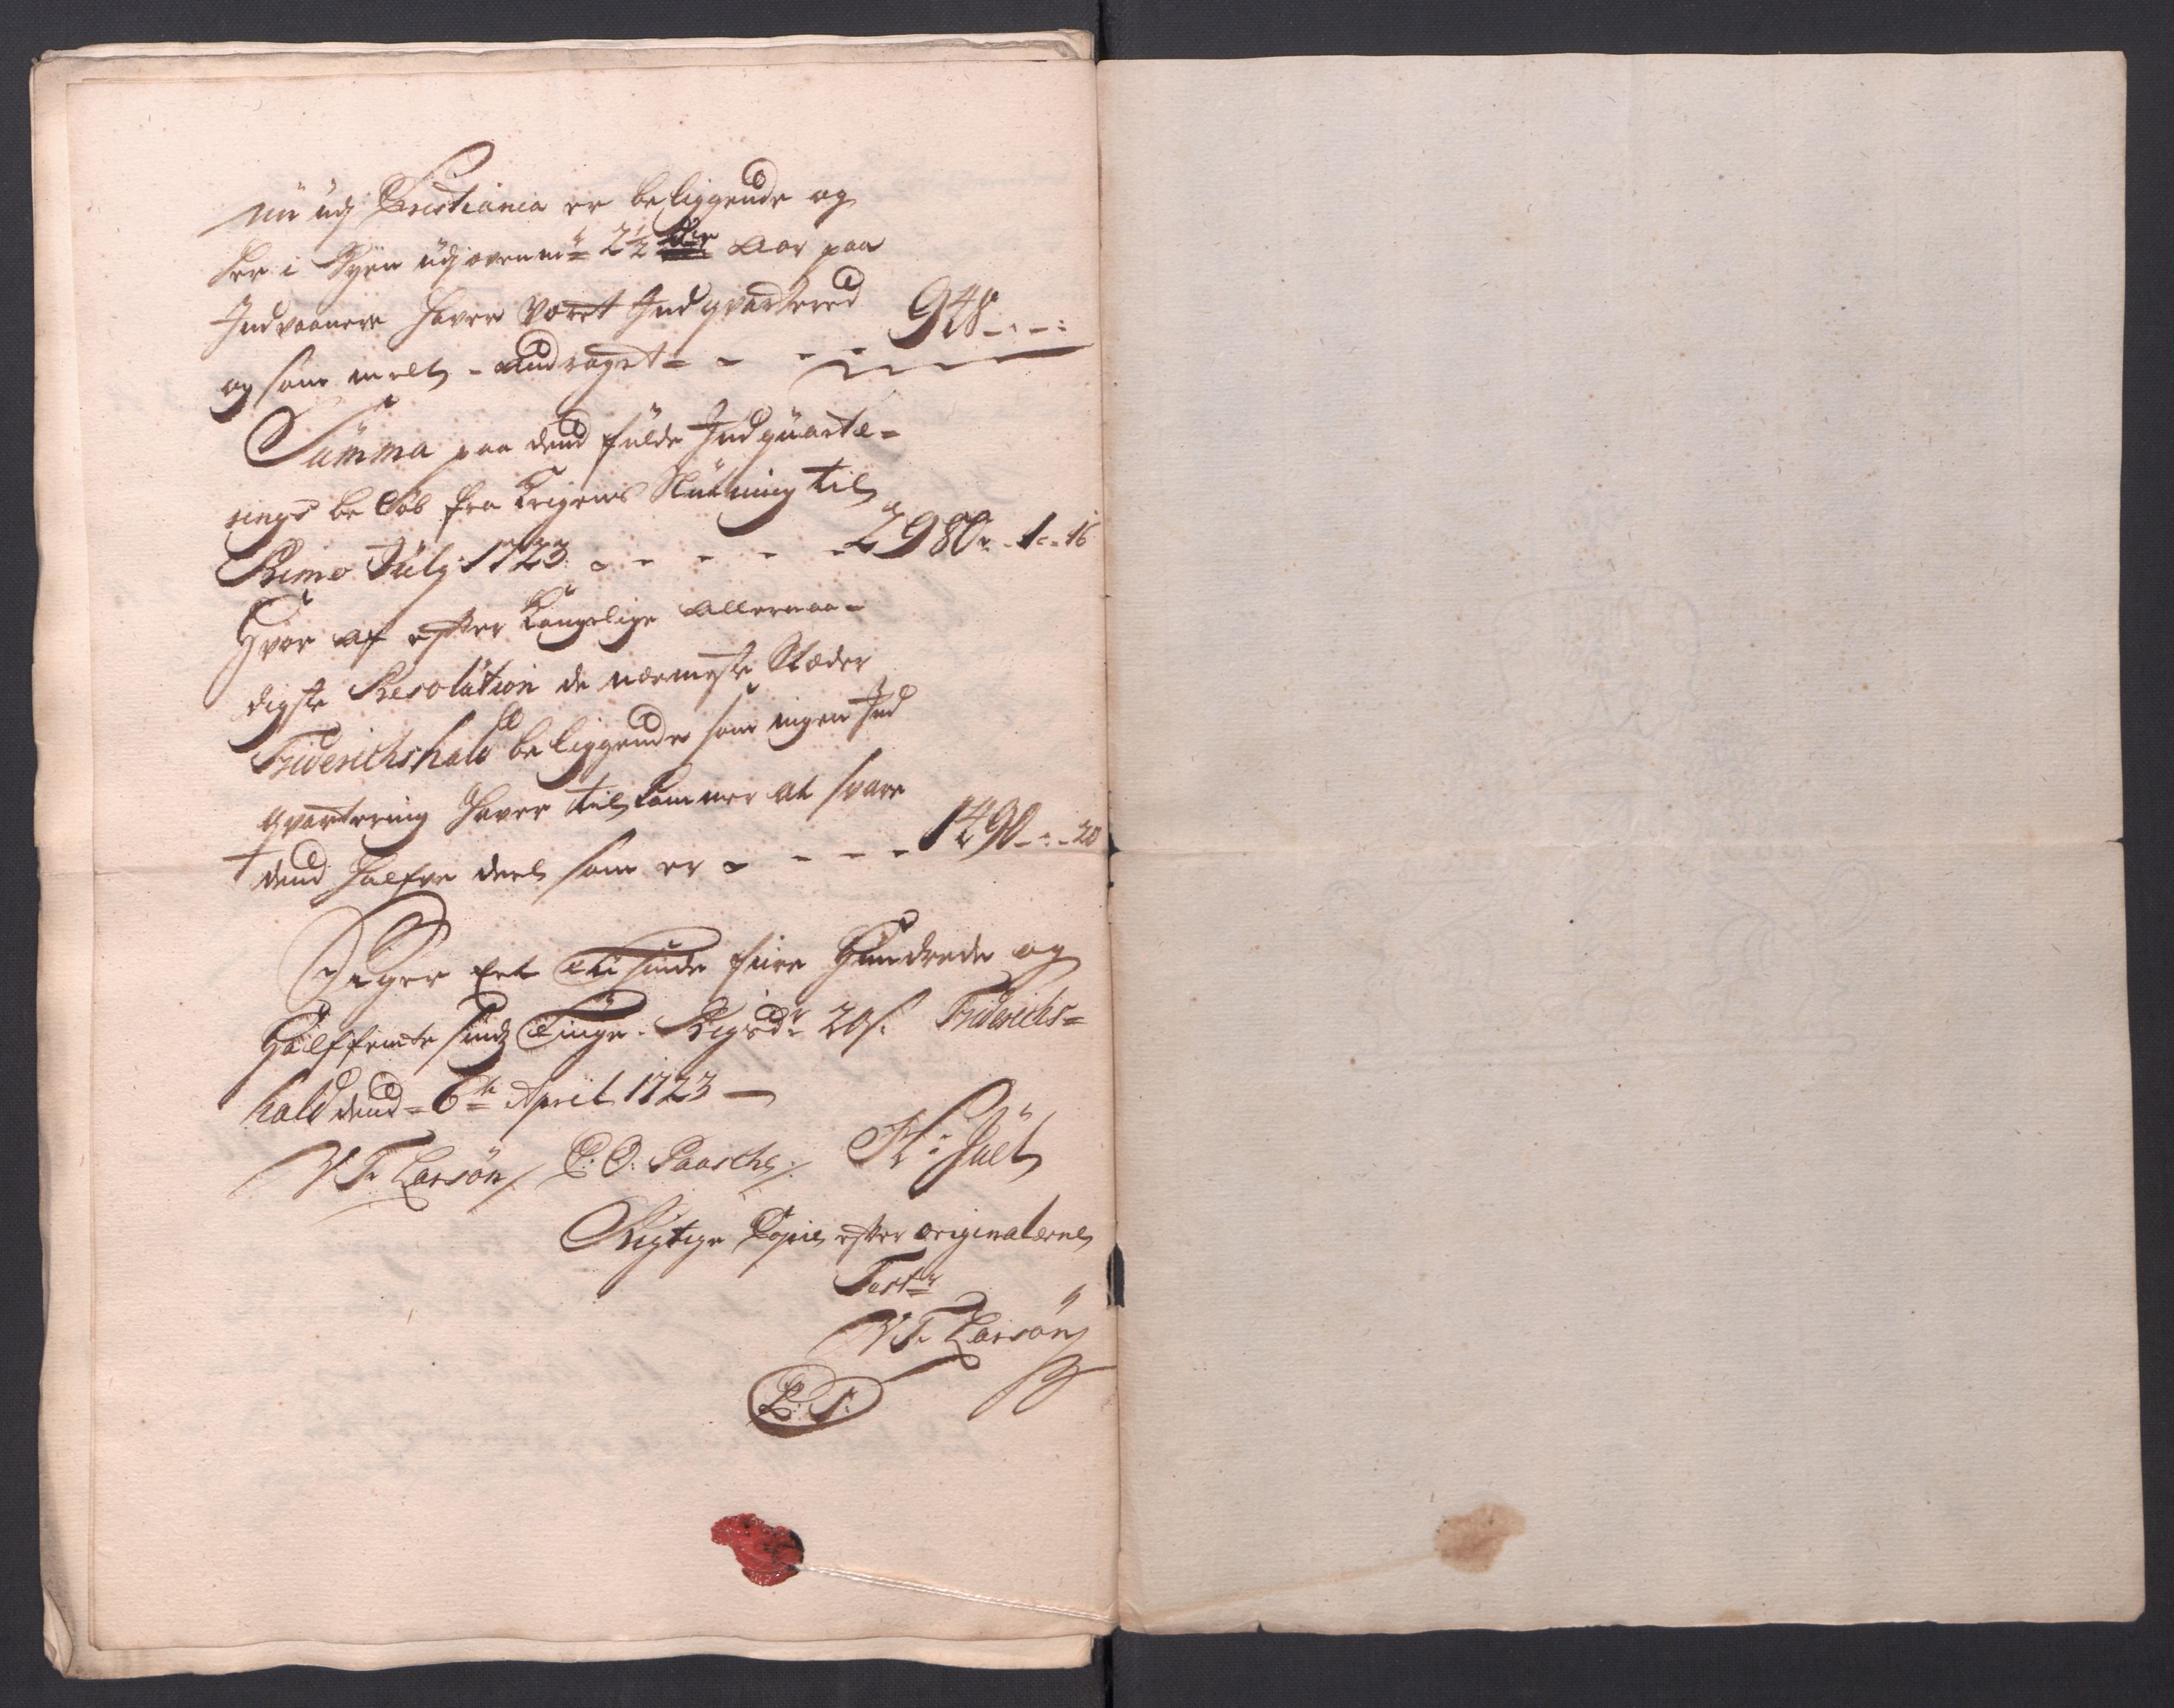 nu udj Christiania er beliggende og
her i Byen udj ovenm: 2½ Aar paa
Indvaanere haver været Indqvartered
og som melt - andraget - - - - 948 - : - :
Summa paa dend fulde Indquarte-
rings beløb fra Krigens Slutning til
Primo July 1723 - - - - - 2980 - 1 - 16
Hvor af efter Kongelige allernaa-
digste Resolution de nærmeste Stæder
Friderichshald beliggende som ingen Ind
qvartering haver tilkommer at svare
dend halfve deel som er - - - - 1490 - : - 20
Siger Eet Tusinde fiire Hundrede og
Halffemte sinds Tiuge Rigsdr 20 s. Friderichs-
hald dend 6te April 1723 -
N T. Larsøn / P: O: Paasche /. H: Juel
Rigtige Copie efter originalerne
Test:
N T. Larsøn
L: S: